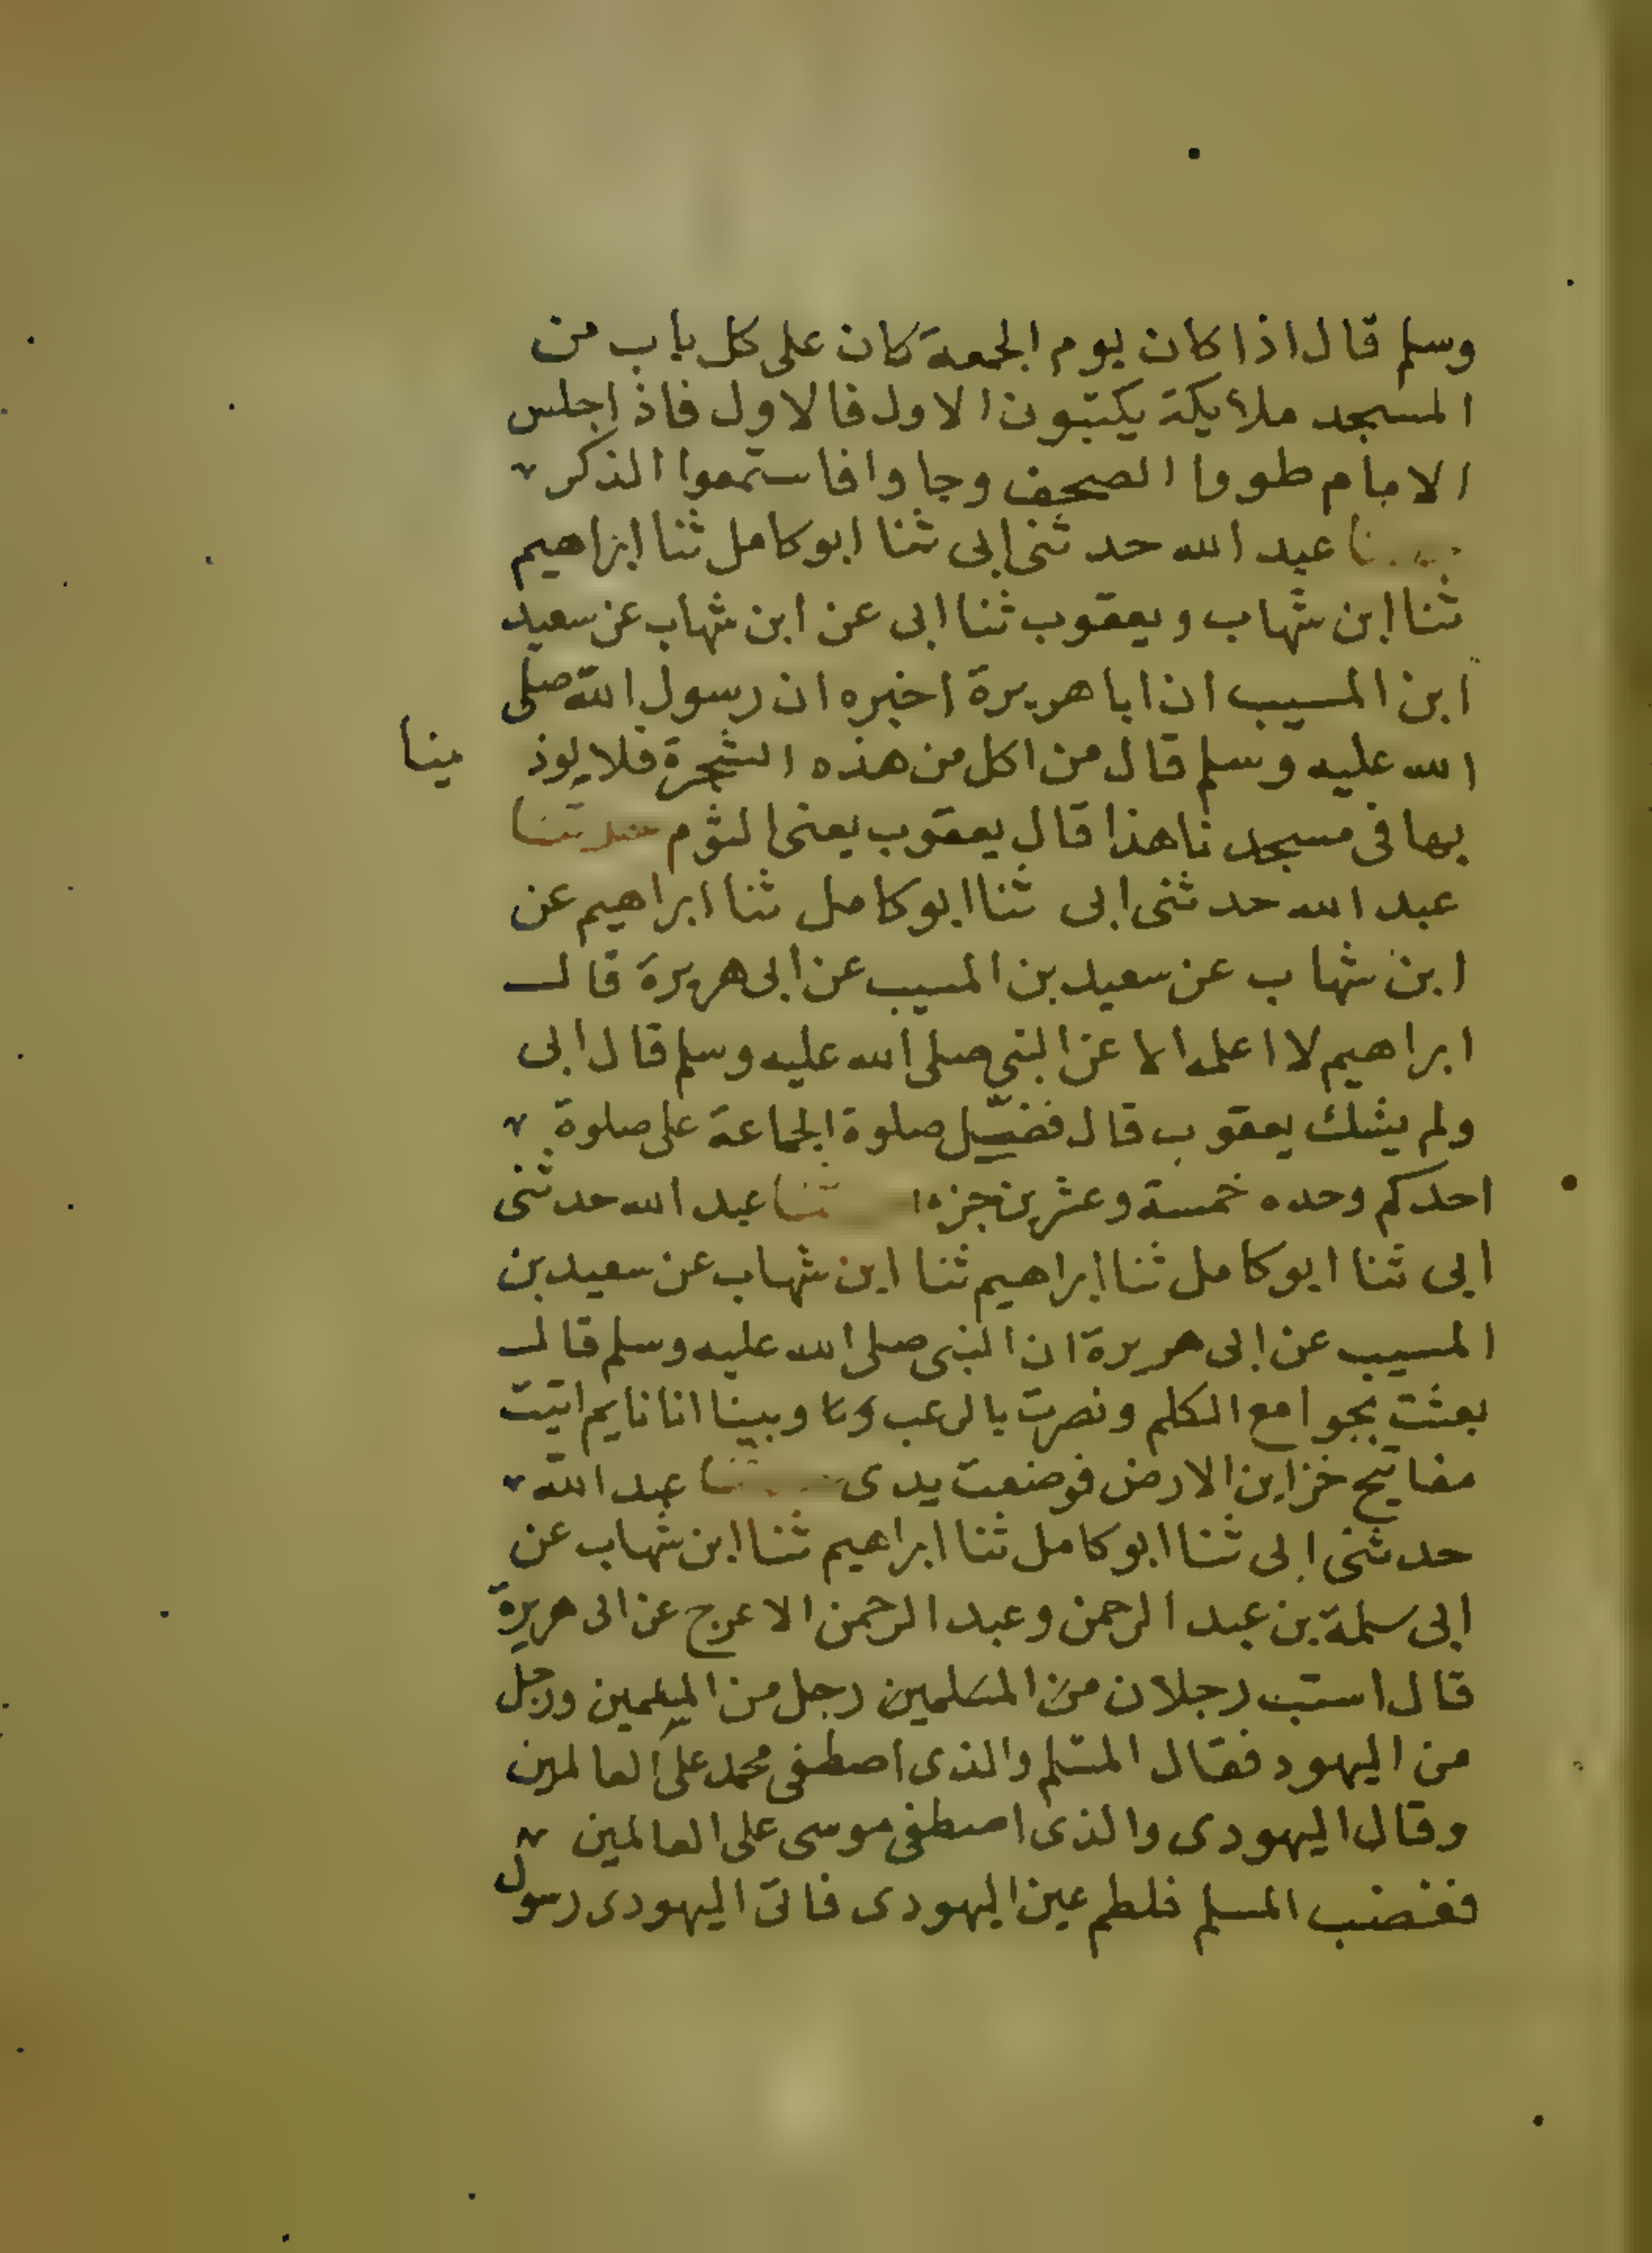 وسلم قال اذا كان يوم الجمعة كان على كل باب من
المسجد ملايكة يكتبون الاول فالاول فاذا جلس
الامام طووا الصحف وجاوا فاستمعوا الذكر
عبد الله حدثنى ابى ثنا ابو كامل ثنا ابراهيم
ثنا ابن شهاب ويعقوب ثنا ابى عن ابن شهاب عن سعيد
ابن المسيب ان ابا هريرة اخبره ان رسول الله صلى
الله عليه وسلم قال من اكل من هذه الشجرة فلا يوذ ينا
بها فى مسجدنا هذا قال يعقوب يعنى الثوم حدثنا
عبد الله حدثنى ابى ثنا ابو كامل ثنا ابراهيم عن
ابن شهاب عن سعيد بن المسيب عن ابى هريرة قال
ابراهيم لا اعلمه الا عن النبي صلى الله عليه وسلم قال ابى
ولم يشك يعقوب قال فضل صلوة الجماعة على صلوة
احدكم وحده خمسة وعشرين جزءا ثنا عبد الله حدثنى
ابى ثنا ابو كامل ثنا ابراهيم ثنا ابن شهاب عن سعيد بن
المسيب عن ابى هريرة ان النبى صلى الله عليه وسلم قال
بعثت بجوامع الكلم ونصرت بالرعب وبينا انا نايم اتيت
مفاتيح خزاين الارض فوضعت يدى ثنا عبد الله
حدثنى ابى ثنا ابو كامل ثنا ابراهيم ثنا ابن شهاب عن
ابى سلمة بن عبد الرحمن وعبد الرحمن الاعرج عن ابى هريرة
قال استب رجلان من المسلمين رجل من المسلمين ورجل
من اليهود فقال المسلم والذى اصطفى محمد على العالمين
وقال اليهودى والذى اصطفى موسى على العالمين
فغضب المسلم فلطم عين اليهودى فاتى اليهودى رسول